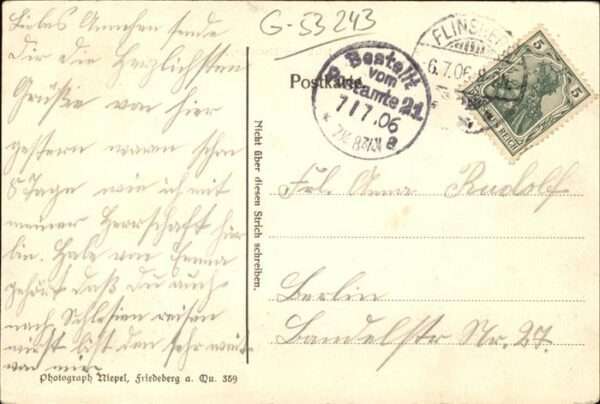 G-53243
Liebes Annchen sende
Dir die Herzlichsten
Grüße von hier
gestern waren schon
8 Tage wie ich mit
meiner Herrschaft hier
bin. Habe von Emma
gehört daß du auch
nach Schlesien reisen
wirst bist den sehr weit
von mir
Photograph Niepel, Friedeberg a. Qu. 369
Nicht über diesen Strich schreiben.
Postkarte
Bestellt
vom
Postamte 21
7/7.06
FLINSBERG
6.7.06
5
5
REICH
Frl. Anna Rudolf
Berlin
Bandelstr Nr. 27.